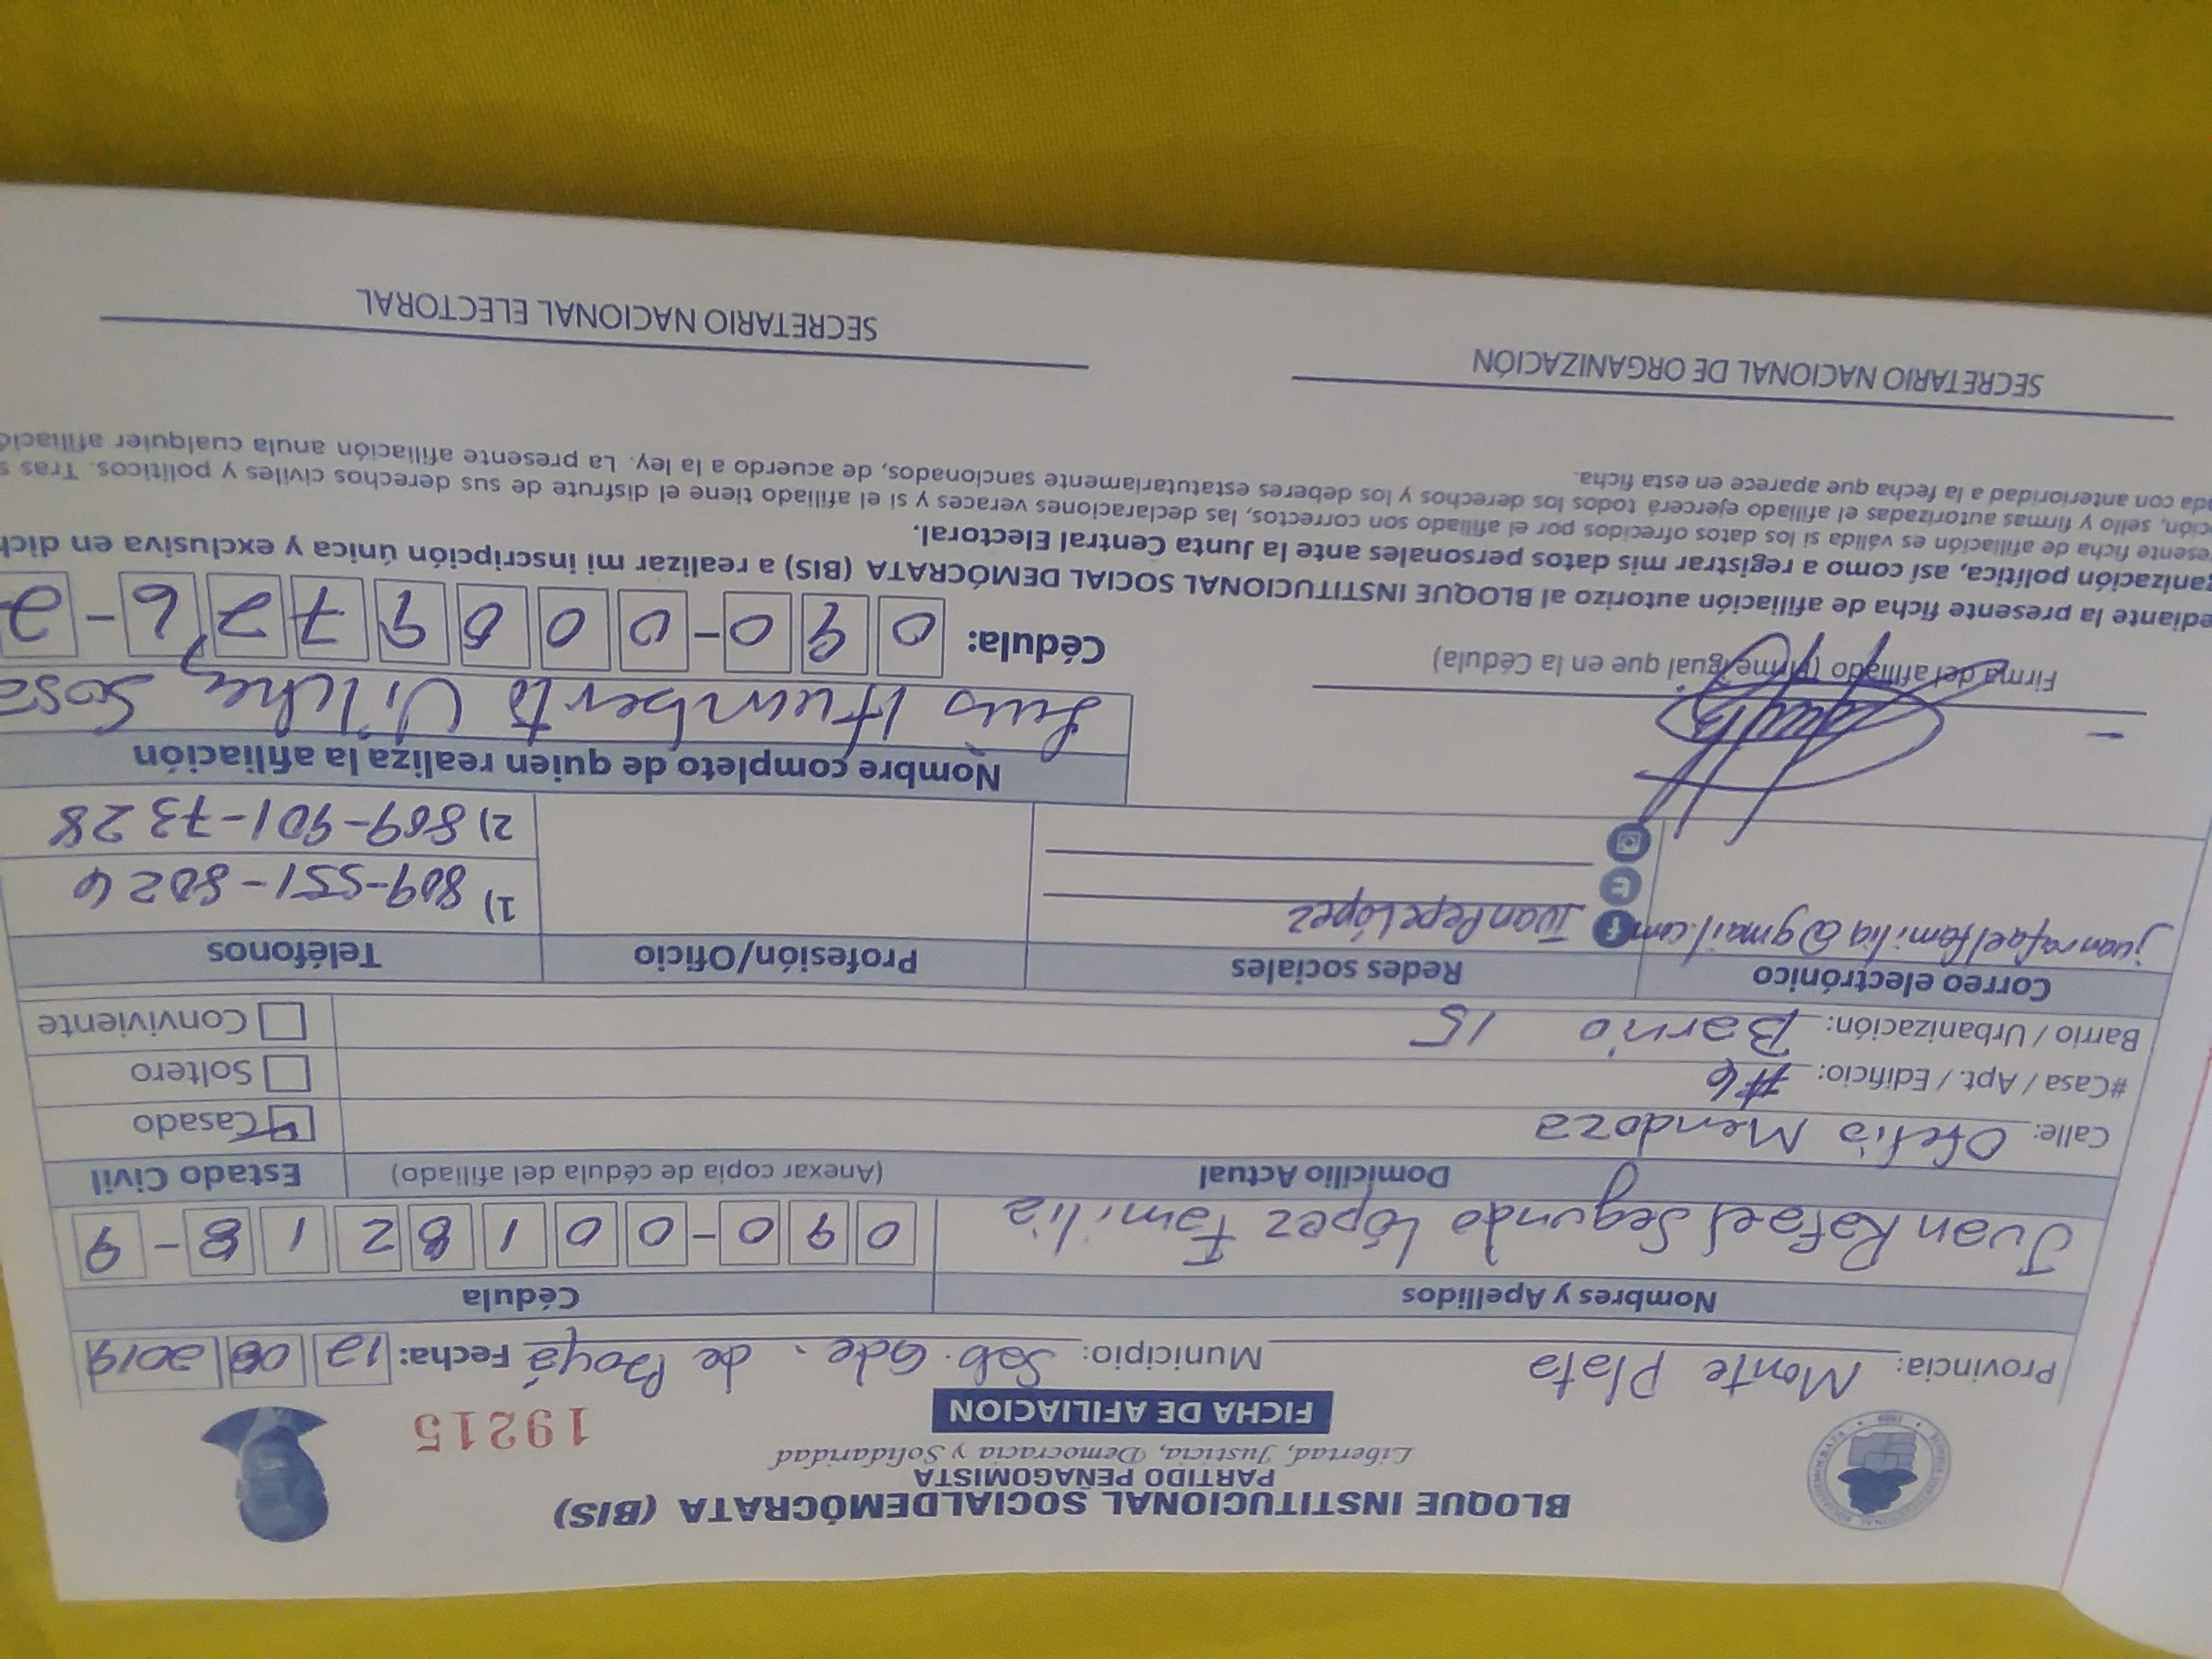 BLOQUE INSTITUCIONAL SOCIALDEMÓCRATA (BIS)
PARTIDO PEÑAGOMISTA
Libertad, Justicia, Democracia y Solidaridad
FICHA DE AFILIACION
19215
Provincia: Monte Plata Municipio: Sab. Gde. de Boyá Fecha: 12 08 2019
Nombres y Apellidos Cédula
Juan Rafael Segundo López Familia 090-0018218-9
Domicilio Actual (Anexar copia de cédula del afiliado) Estado Civil
Calle: Ofelia Mendoza Casado
#Casa / Apt. / Edificio: #6 Soltero
Barrio / Urbanización: Barrio 15 Conviviente
Correo electrónico Redes sociales Profesión/Oficio Teléfonos
juanrafaelfamilia@gmail.com Juan Pepe López 1) 809-551-8026
2) 809-901-7328
Nombre completo de quien realiza la afiliación
Luis Humberto Vilchez Sosa
Firma del afiliado (Firme igual que en la Cédula) Cédula: 090-0009726-2
ediante la presente ficha de afiliación autorizo al BLOQUE INSTITUCIONAL SOCIAL DEMÓCRATA (BIS) a realizar mi inscripción única y exclusiva en dich
ganización política, así como a registrar mis datos personales ante la Junta Central Electoral.
esente ficha de afiliación es válida si los datos ofrecidos por el afiliado son correctos, las declaraciones veraces y si el afiliado tiene el disfrute de sus derechos civiles y políticos. Tras s
ción, sello y firmas autorizadas el afiliado ejercerá todos los derechos y los deberes estatutariamente sancionados, de acuerdo a la ley. La presente afiliación anula cualquier afiliació
ada con anterioridad a la fecha que aparece en esta ficha.
SECRETARIO NACIONAL DE ORGANIZACIÓN SECRETARIO NACIONAL ELECTORAL